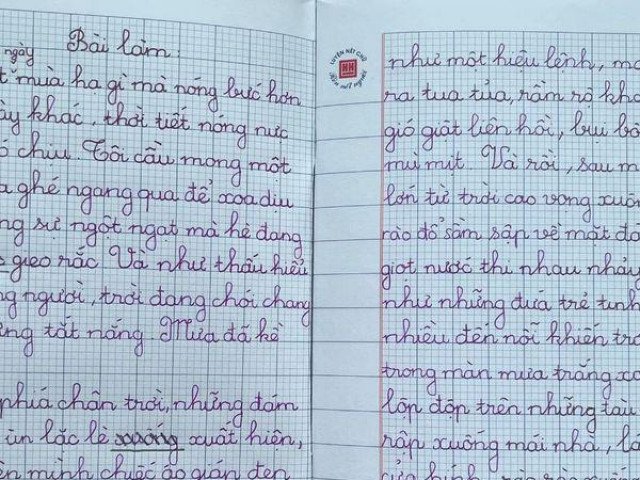 ngày Bài làm:
mùa hạ gì mà nóng bức hơn
khác, thời tiết nóng nực
chịu. Tôi cầu mong một
ghé ngang qua để xoa dịu
sự ngột ngạt mà hè đang
gieo rắc. Và như thấu hiểu
người, trời đang chói chang
tắt nắng. Mưa đã kề
phía chân trời, những đám
ùn lắc lè xuống xuất hiện,
mình chiếc áo gián đen
LUYỆN NÉT CHỮ
RÈN NẾT NGƯỜI
như một hiệu lệnh,
ra tua tủa, rầm rộ
gió giật liên hồi, bụi
mù mịt. Và rồi, sau
lớn từ trời cao vọng
rào đổ sầm sập về mặt
giọt nước thi nhau nhảy
như những đứa trẻ tinh
nhiều đến nỗi khiến
trong màn mưa trắng
lộp độp trên những tàu
rập xuống mái nhà,